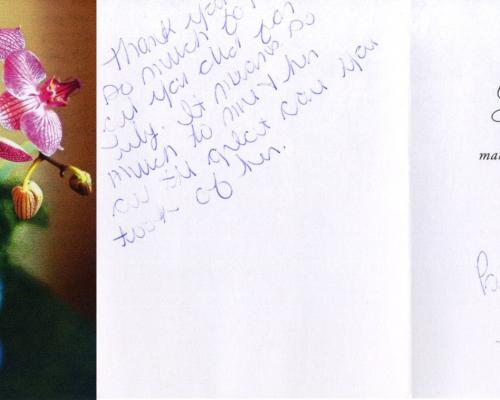 Thank you
so much for
all you did for
Lily. It means so
much to me & her
all the great care you
took of her.
ma